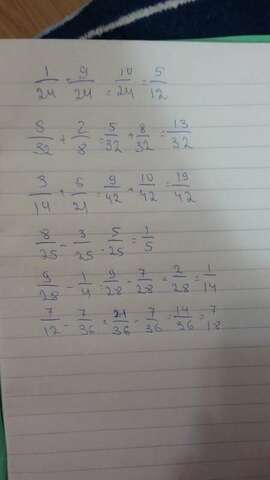 1/24 + 9/24 = 10/24 = 5/12
5/32 + 2/8 = 5/32 + 8/32 = 13/32
3/14 + 5/21 = 9/42 + 10/42 = 19/42
8/25 - 3/25 = 5/25 = 1/5
9/28 - 1/4 = 9/28 - 7/28 = 2/28 = 1/14
7/12 - 7/36 = 21/36 - 7/36 = 14/36 = 7/18